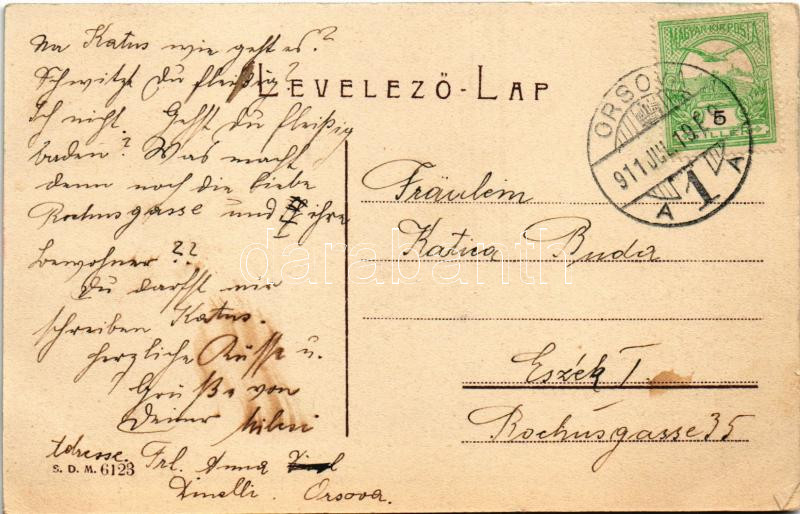 Na Katus wie geht es?
Schwitzt Du fleißig?
Ich nicht. Gehst Du fleißig
baden? Was macht
denn noch die liebe
Rochusgasse und ihre
Bewohner??
Du darfst mir
schreiben Katus.
Herzliche Küsse u.
Grüße von
Deiner
Adresse. Frl. Anna
Dinelli. Orsova.
S. D. M. 6123
LEVELEZŐ-LAP
MAGYAR KIR. POSTA
5
FILLÉR
ORSOVA
911 JUL. 19
A 1 A
Fräulein
Katica Buda
Eszék I.
Rochusgasse 35
darabanth